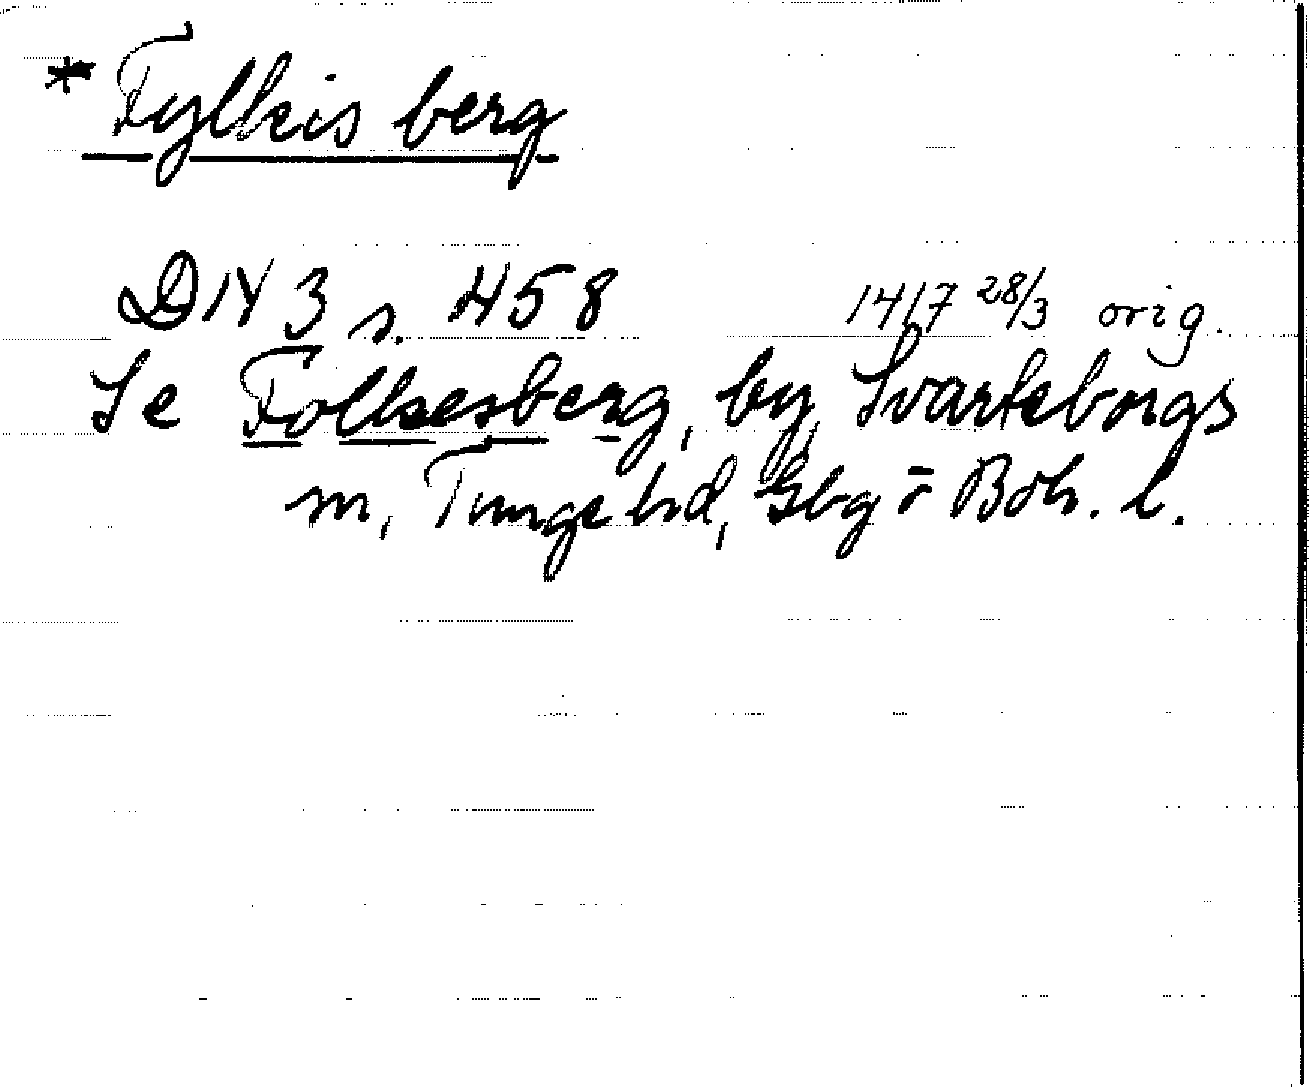 * Fylkis berg
DN 3 s. 458 1417 28/3 orig.
Se Folkesberg, by, Svarteborgs
m, Tunge hd, Gbg o Boh. l.